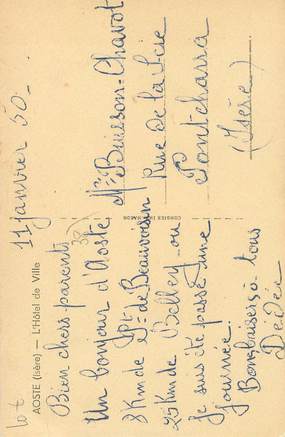 lot
AOSTE (Isère) — L'Hôtel de Ville
11 Janvier 50 -
Bien chers parents
Un bonjour d'Aoste 38
8 Km de Pt de Beauvoisin
25 Km de Belley - ou
Je suis été passé une
journée.
Bons baisers à tous
Dédée
COMBIER IMP. MACON
Mr Buisson-Chavot
Rue De la Scie
Pontcharra
(Isère)